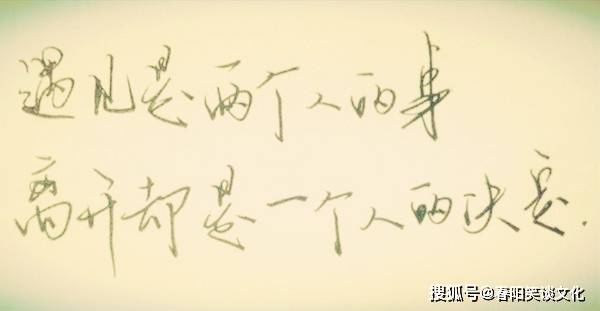 遇见是两个人的事
离开却是一个人的决定.
搜狐号@春阳笑谈文化